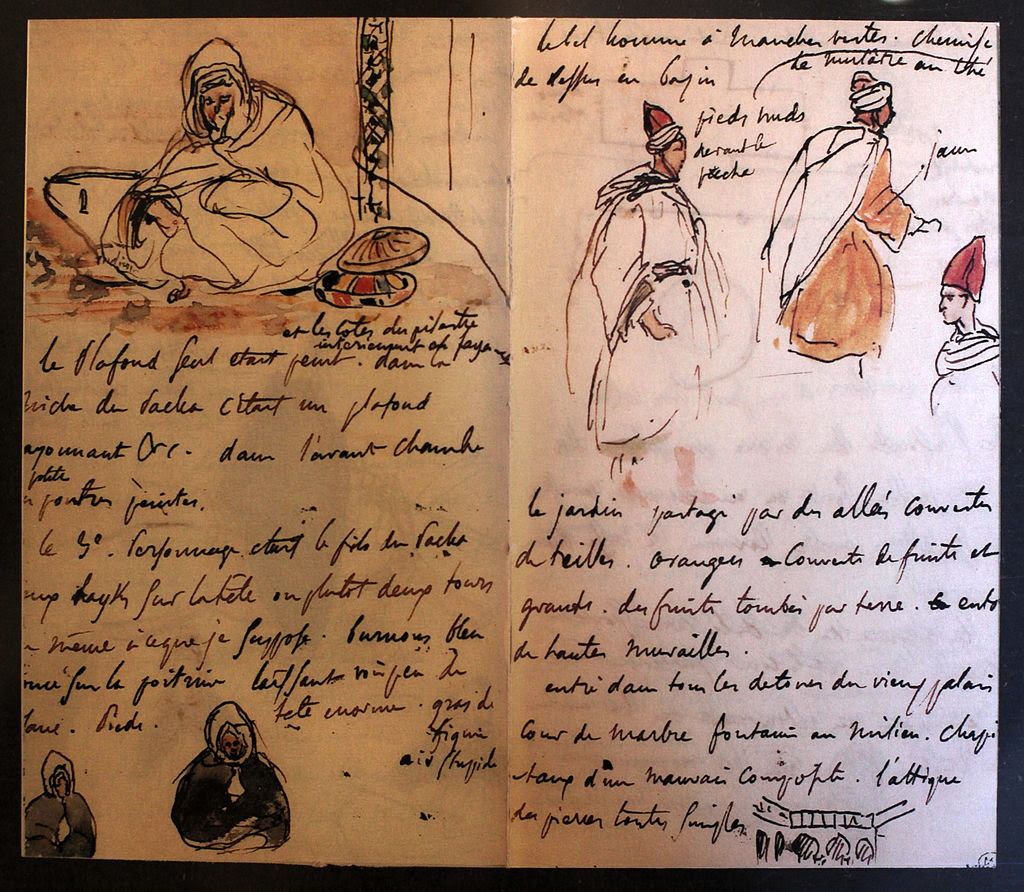 et les cotés du pilastre
intérieurement en fayence
le Plafond seul etait peint. dans la
niche du Pacha c'était un plafond
rayonnant &c. dans l'avant chambre
petite
poutres peintes.
le 3e. Personnage etait le fils du Pacha
deux hayks sur la tête ou plutot deux tours
même à ce que je suppose. burnous bleu
sur la poitrine laissant voir peu de
tete enorme. gras de
figure
air stupide
le bel homme à manches vertes. chemise
de dessus en bazin
le mulâtre au thé
pieds nuds
devant le
pacha
jaun
le jardin partagé par des allées couvertes
de treilles. orangers couverts de fruits et
grands. des fruits tombés par terre. entouré
de hautes murailles.
entré dans tous les détours du vieux palais
cour de marbre fontaine au milieu. chapi
taux d'un mauvais composite. l'attique
des pierres toutes simples